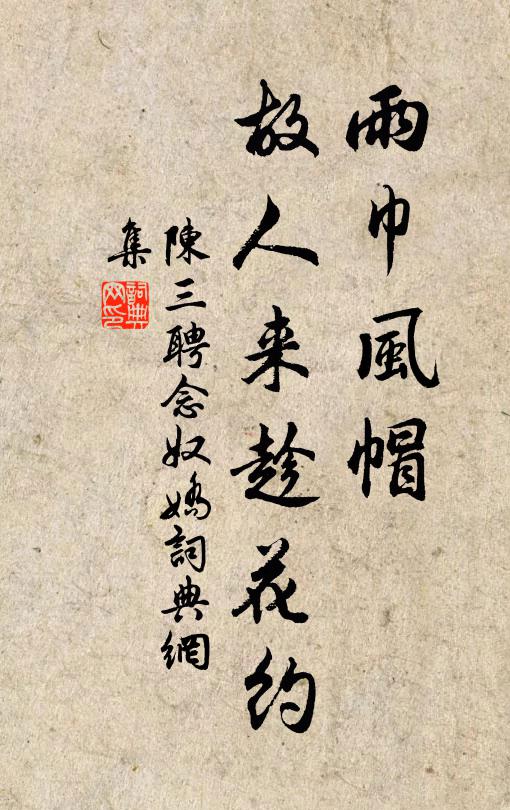 雨巾風帽
故人来趁花约
陳三聘念奴嬌詞典網
集
詞典網印